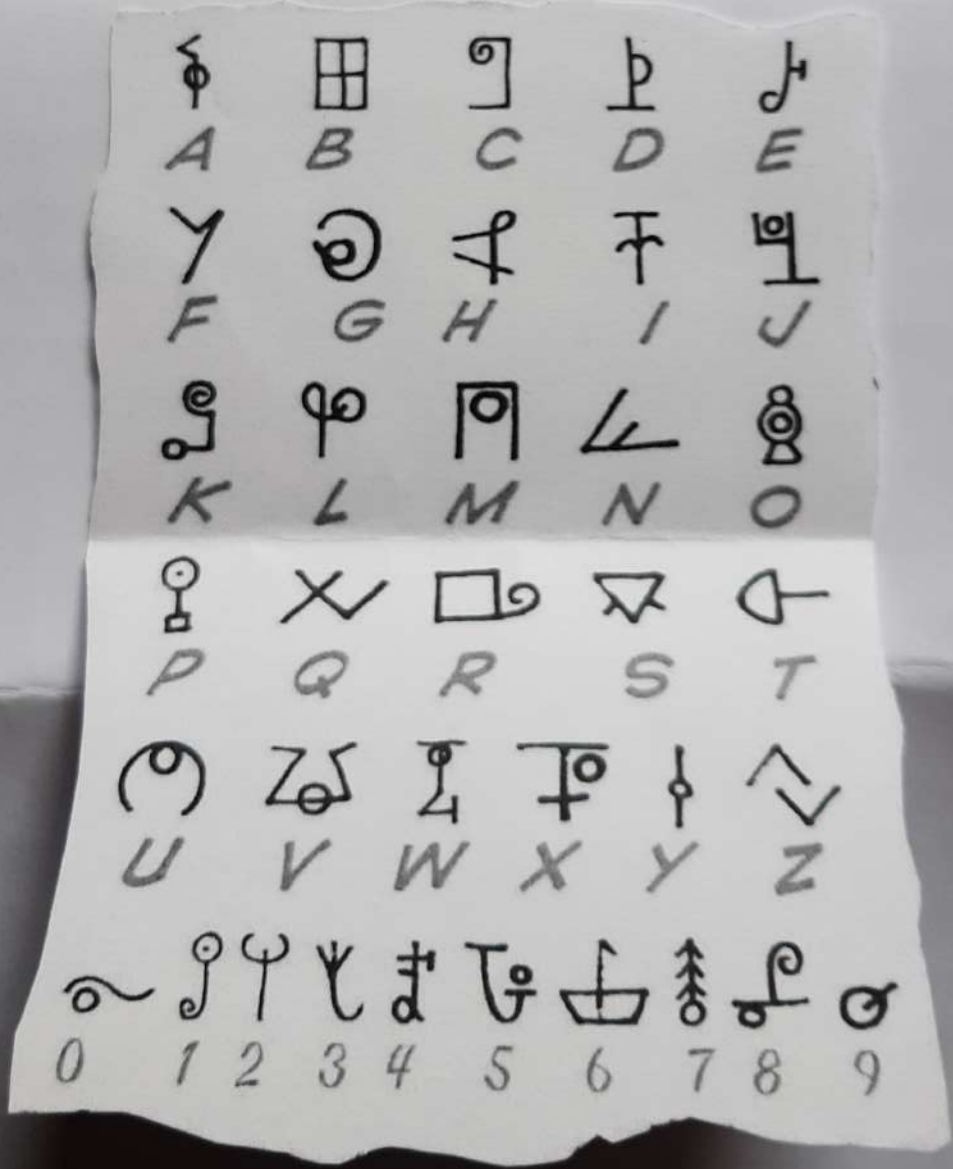 A B C D E
F G H I J
K L M N O
P Q R S T
U V W X Y Z
0 1 2 3 4 5 6 7 8 9